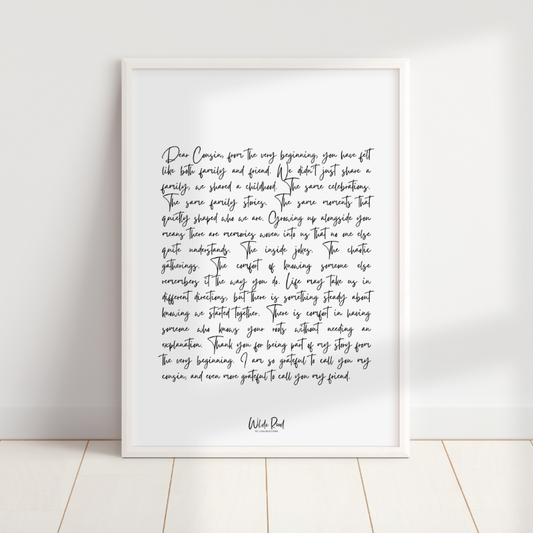 Dear Cousin, from the very beginning, you have felt
like both family and friend. We didn't just share a
family, we shared a childhood. The same celebrations.
The same family stories. The same moments that
quietly shaped who we are. Growing up alongside you
means there are memories woven into us that no one else
quite understands. The inside jokes. The chaotic
gatherings. The comfort of knowing someone else
remembers it the way you do. Life may take us in
different directions, but there is something steady about
knowing we started together. There is comfort in having
someone who knows your roots without needing an
explanation. Thank you for being part of my story from
the very beginning. I am so grateful to call you my
cousin, and even more grateful to call you my friend.
Wilde Road